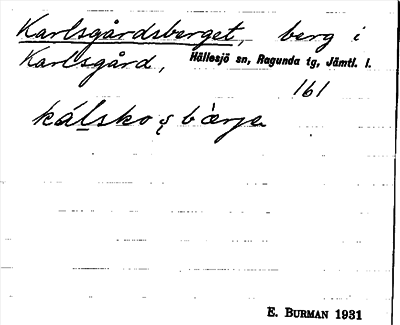 Karlsgårdsberget, berg i
Karlsgård, Hällesjö sn, Ragunda tg, Jämtl. l.
161
E. BURMAN 1931